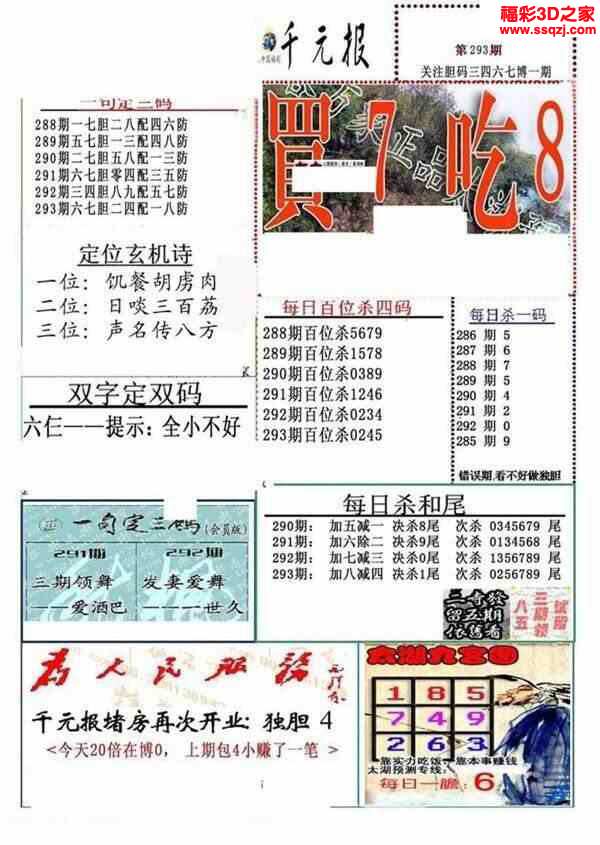 福彩3D之家
www.ssqzj.com
千元报
第293期
关注胆码三四六七博一期
買7吃8
一句定三码
288期一七胆二八配四六防
289期五七胆一三配八四防
290期二七胆五八配一三防
291期六七胆零四配三五防
292期三四胆八九配五七防
293期六七胆二四配一八防
定位玄机诗
一位：饥餐胡虏肉
二位：日啖三百荔
三位：声名传八方
双字定双码
六仨——提示：全小不好
每日百位杀四码
288期百位杀5679
289期百位杀1578
290期百位杀0389
291期百位杀1246
292期百位杀0234
293期百位杀0245
每日杀一码
286 期 5
287 期 6
288 期 7
289 期 5
290 期 4
291 期 2
292 期 0
285 期 9
错误期,看不好做独胆
一句定三码(会员版)
291期
三期领舞
——爱酒巴
292期
发妻爱舞
——一世久
每日杀和尾
290期： 加五减一 决杀8尾 次杀 0345679 尾
291期： 加六除二 决杀9尾 次杀 0134568 尾
292期： 加七减三 决杀0尾 次杀 1356789 尾
293期： 加八减四 决杀1尾 次杀 0256789 尾
三奇發
留五期
依舊看
试留
三期领
八五
为人民服务
千元报堵房再次开业: 独胆 4
<今天20倍在博0， 上期包4小赚了一笔 >
太湖九宫图
1 8 5
7 4 9
2 6 3
靠实力吃饭，靠本事赚钱
太湖预测专线:
每日一胆: 6